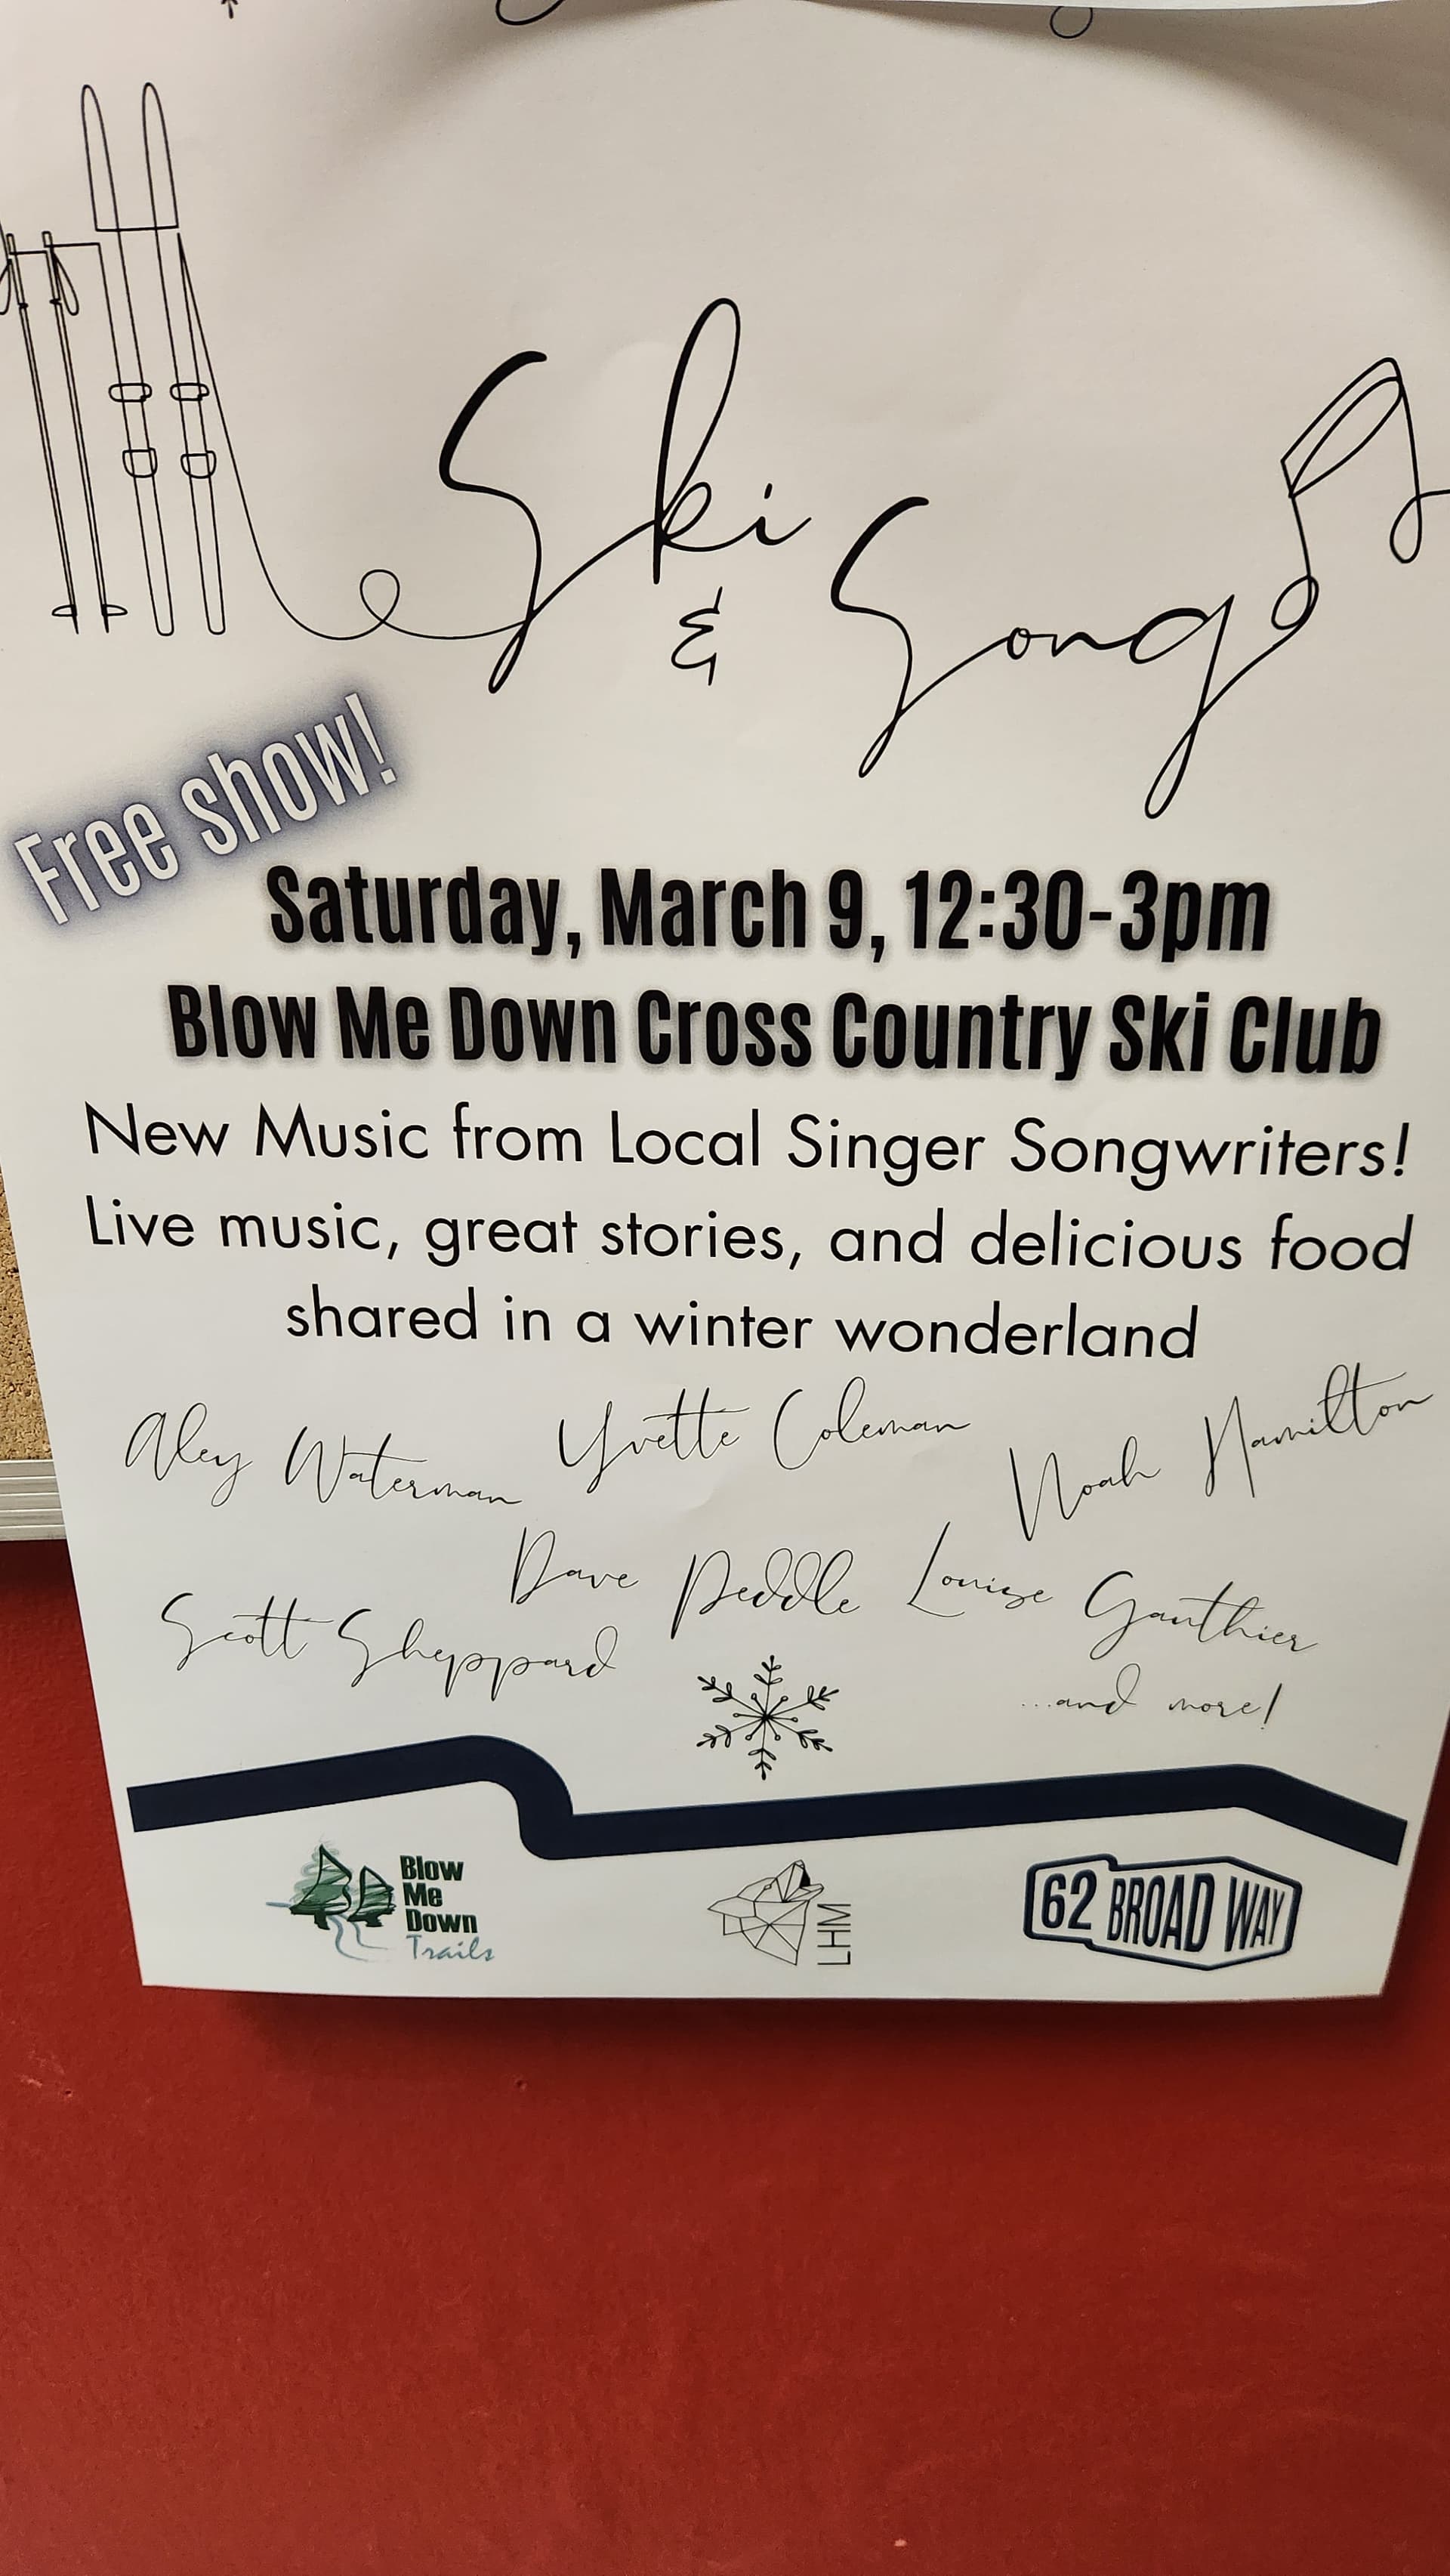 Ski
&
Song
Free show!
Saturday, March 9, 12:30-3pm
Blow Me Down Cross Country Ski Club
New Music from Local Singer Songwriters!
Live music, great stories, and delicious food
shared in a winter wonderland
Aley Waterman Yvette Coleman Noah Hamilton
Scott Sheppard Dave Peddle Louise Gauthier
...and more!
Blow
Me
Down
Trails
LHM
62 BROADWAY